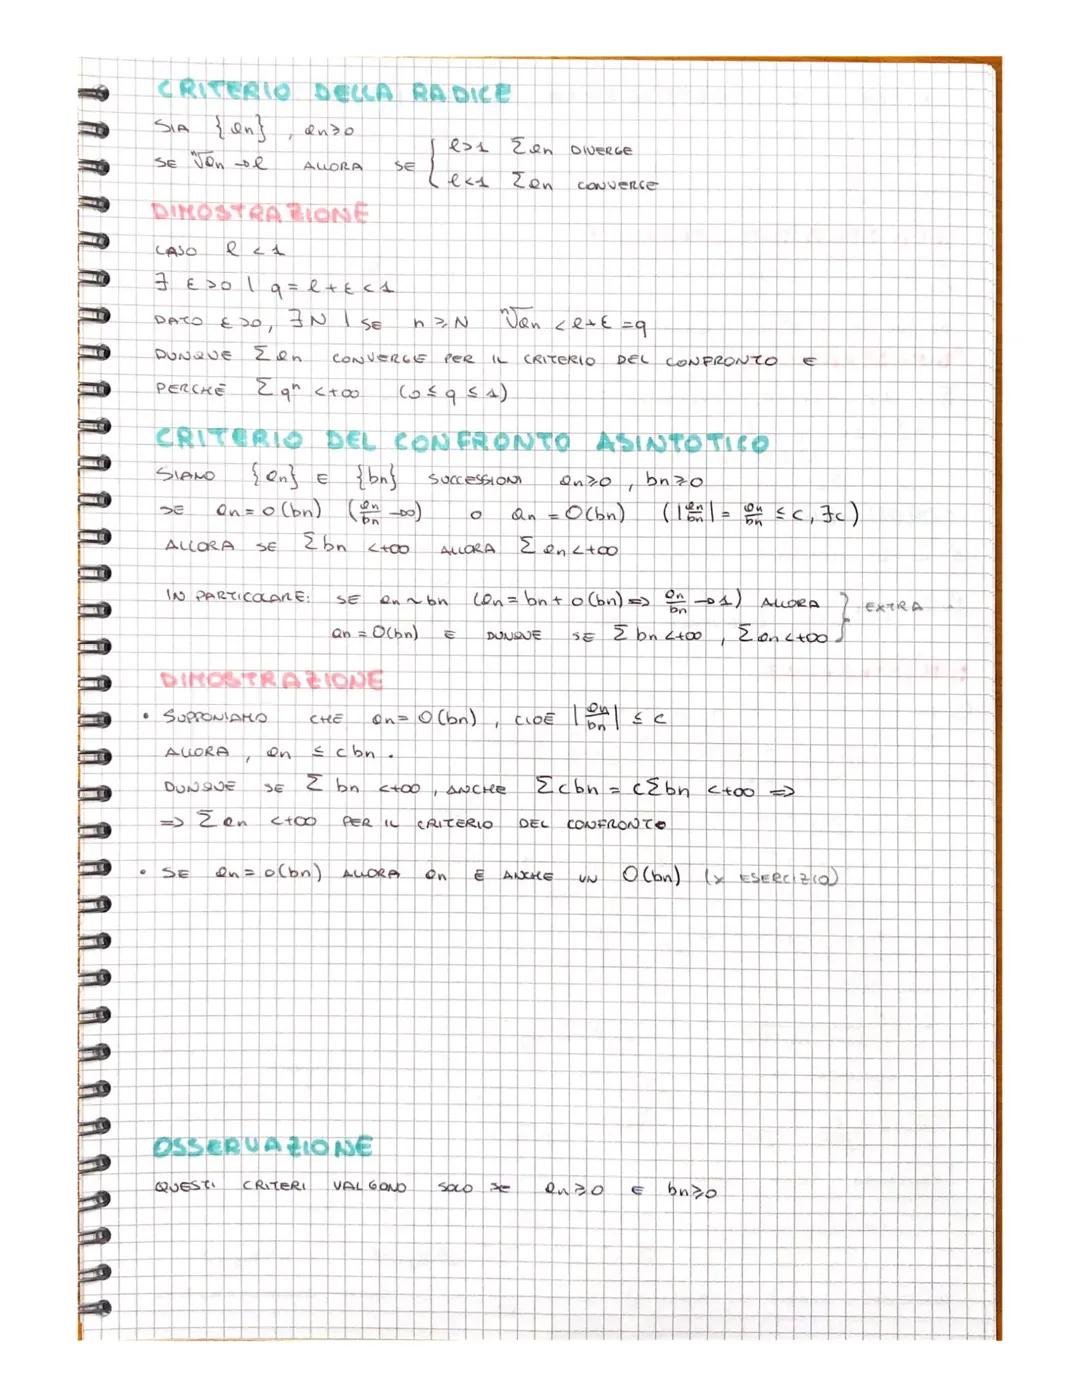 CRITERIO DELLA RADICE
SIA {an} , an≥0
SE ⁿ√an → l ALLORA SE { l>1 Σan DIVERGE
l<1 Σan CONVERGE
DIMOSTRAZIONE
CASO l < 1
∃ ε>0 | q = l+ε < 1
DATO ε>0, ∃N | SE n ≥ N ⁿ√an < l+ε = q
DUNQUE Σan CONVERGE PER IL CRITERIO DEL CONFRONTO E
PERCHÉ Σqⁿ < +∞ (0 ≤ q ≤ 1)
CRITERIO DEL CONFRONTO ASINTOTICO
SIANO {an} E {bn} SUCCESSIONI an≥0 , bn≥0
SE an = o(bn) (an/bn →0) O an = O(bn) (|an/bn| = an/bn ≤ c, ∃c)
ALLORA SE Σbn <+∞ ALLORA Σan <+∞
IN PARTICOLARE: SE an ~ bn (an = bn + o(bn) => an/bn → 1) ALLORA } EXTRA
an = O(bn) E DUNQUE SE Σbn <+∞ , Σan <+∞
DIMOSTRAZIONE
• SUPPONIAMO CHE an = O(bn) , CIOÈ |an/bn| ≤ c
ALLORA , an ≤ cbn .
DUNQUE SE Σbn <+∞ , ANCHE Σcbn = cΣbn <+∞ =>
=> Σan <+∞ PER IL CRITERIO DEL CONFRONTO
• SE an = o(bn) ALLORA an È ANCHE UN O(bn) (x ESERCIZIO)
OSSERVAZIONE
QUESTI CRITERI VALGONO SOLO SE an≥0 E bn≥0